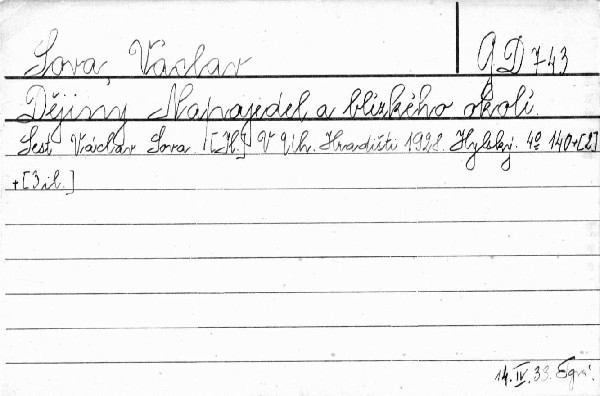 Sova, Václav GD 743
Dějiny Napajedel a blízkého okolí.
Sest. Václav Sova. [II.] V Uh. Hradišti 1928. Hylský. 4º 140+[2]
+[3 il.]
14. IV. 33.